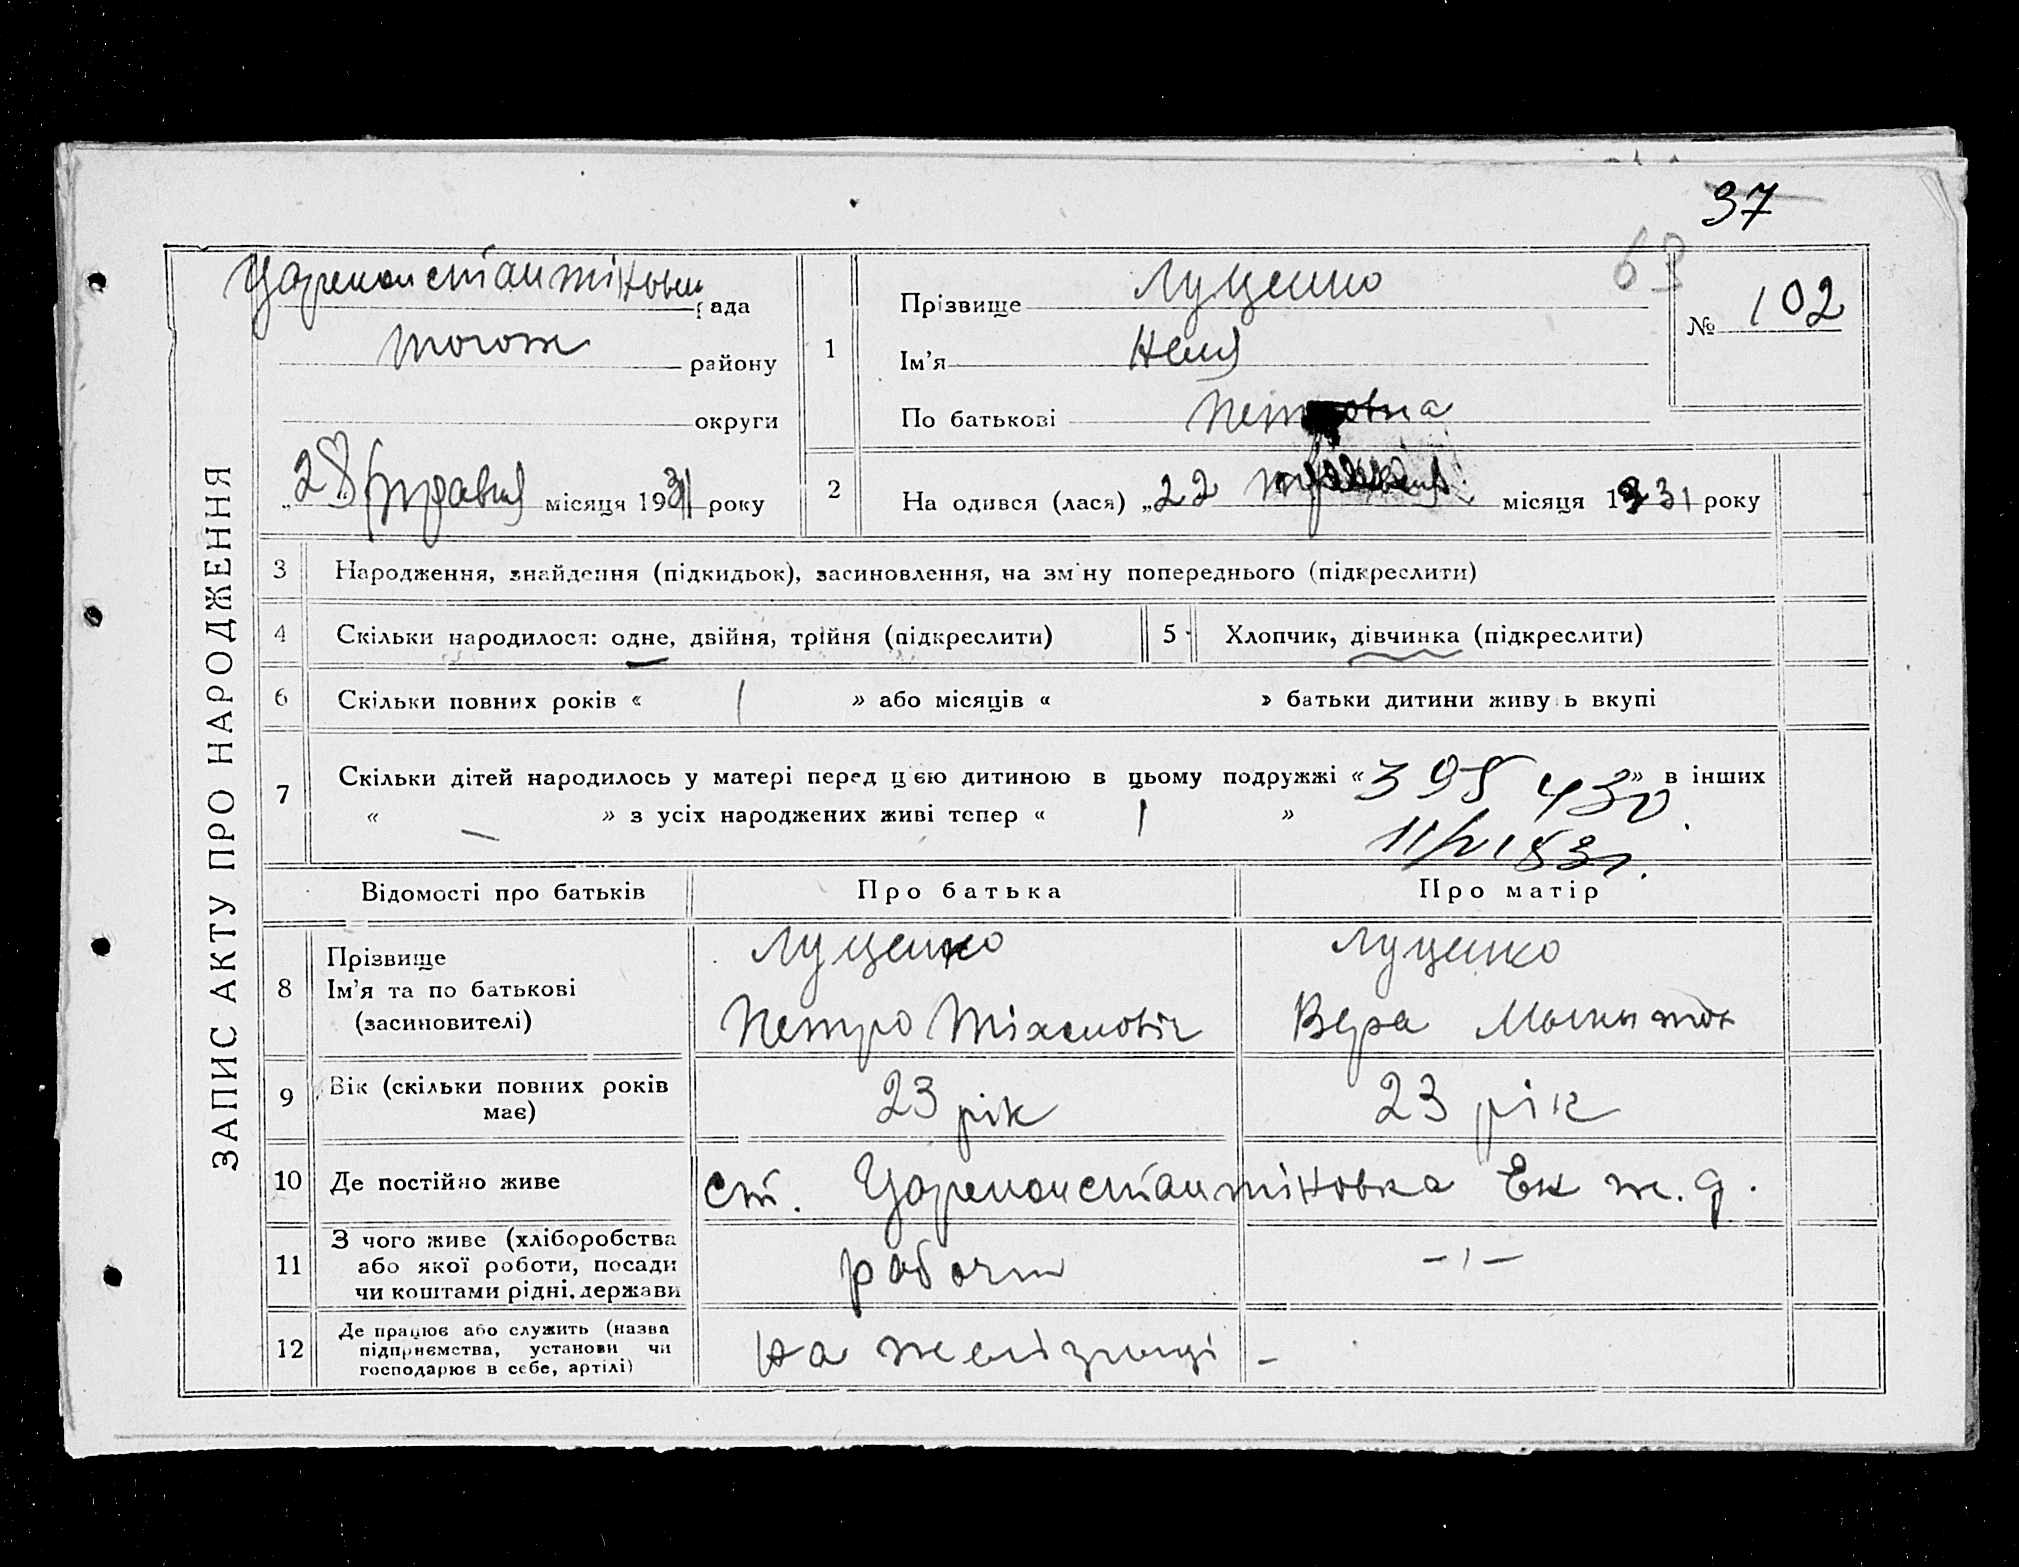 37
63
ЗАПИС АКТУ ПРО НАРОДЖЕННЯ
Цареконстантіновськ рада
того ж району
округи
„28 травня місяця 1931 року
1
Прізвище Луценко
Ім'я Неля
По батькові Петровна
№ 102
2
На одився (лася) „22 травня місяця 1931 року
3 Народження, знайдення (підкидьок), засиновлення, на зм ну попереднього (підкреслити)
4 Скільки народилося: одне, двійня, трійня (підкреслити)
5 Хлопчик, дівчинка (підкреслити)
6 Скільки повних років « 1 » або місяців « » батьки дитини живу ь вкупі
7 Скільки дітей народилось у матері перед ц єю дитиною в цьому подружжі « » в інших
« — » з усіх народжених живі тепер « 1 »
Відомості про батьків
Про батька
Про матір
8 Прізвище
Ім'я та по батькові
(засиновителі)
Луценко
Петро
Луценко
Вера
9 Вік (скільки повних років
має)
23 рік
23 рік
10 Де постійно живе
ст. Цареконстантіновка Ек ж. д.
11 З чого живе (хліборобства
або якої роботи, посади
чи коштами рідні, держави
робочи
– ı –
12 Де працює або служить (назва
підприємства, установи чи
господарює в себе, артілі)
на желізниці
–